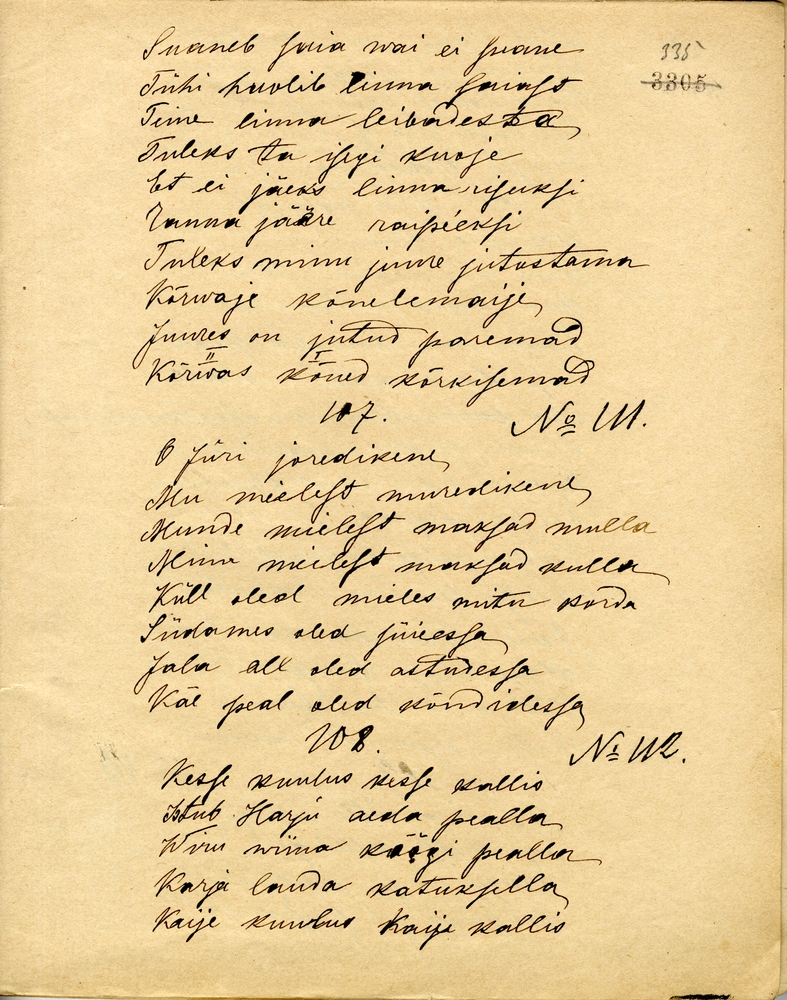 335
3305
Suaneb saia wai ei seane
Tühi huolib linna saiast
Teine linna leibadesta
Tuleks ta isegi kuoje
Et ei jäeks linna risuksi
Ranna jääre raipeeksi
Tuleks minu juure jutostama
Kõrwaje kõnelemaije
Juures on jutud paremad
Kõrwas kõned kõrkisemad
II I
107. No 111.
O Jüri joredikene
Mu mielest muredikene
Munde mielest maksad mulla
Minu meilest maksad kulla
Küll oled mieles mitu korda
Südames oled süieessa
Jala all oled astudessa
Käe peal oled kõndidessa
108. No 112.
Kesse kuulus kesse kallis
Istub Harju aeda pealla
Wiru wiina köögi pealla
Karja lauda katuksella
Kaije kuulus Kaije kallis